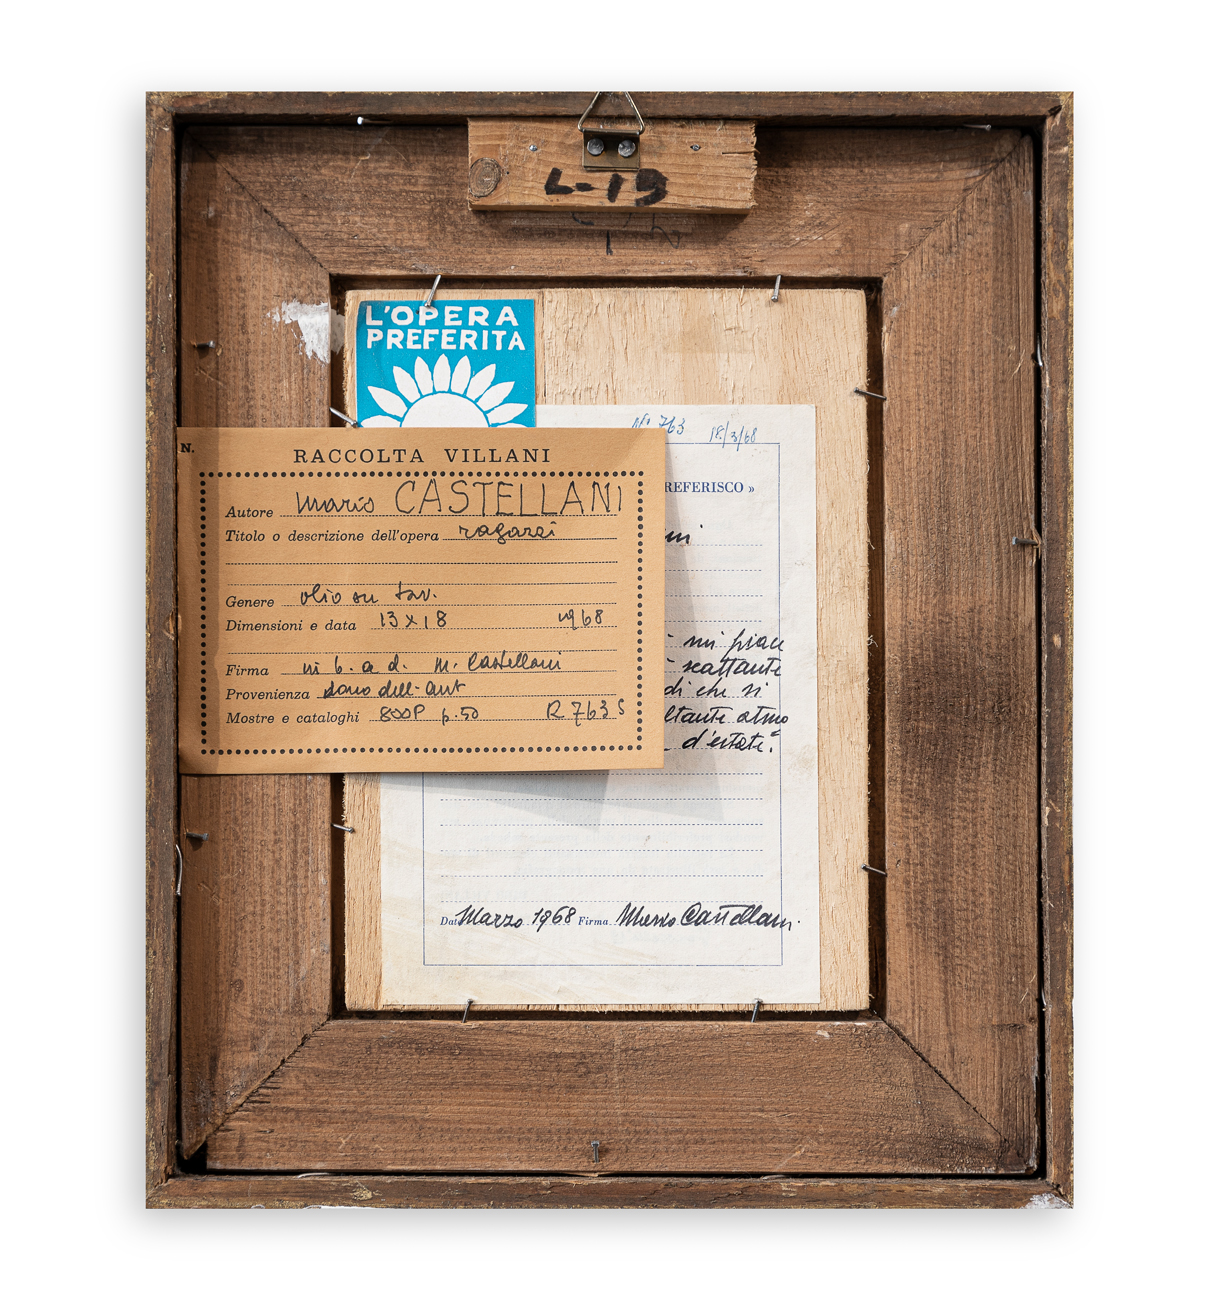 L-19
L'OPERA
PREFERITA
N° 763 18/3/68
REFERISCO »
N.
RACCOLTA VILLANI
Autore Mario CASTELLANI
Titolo o descrizione dell'opera ragazzi
Genere olio su tav.
Dimensioni e data 13x18 1968
Firma in b. a d. M. Castellani
Provenienza dono dell'aut
Mostre e cataloghi 800P p.50 R 763 S
ni
mi piace
scattante
di che si
ltante atmo
d'estate.
Data Marzo 1968 Firma Mario Castellani